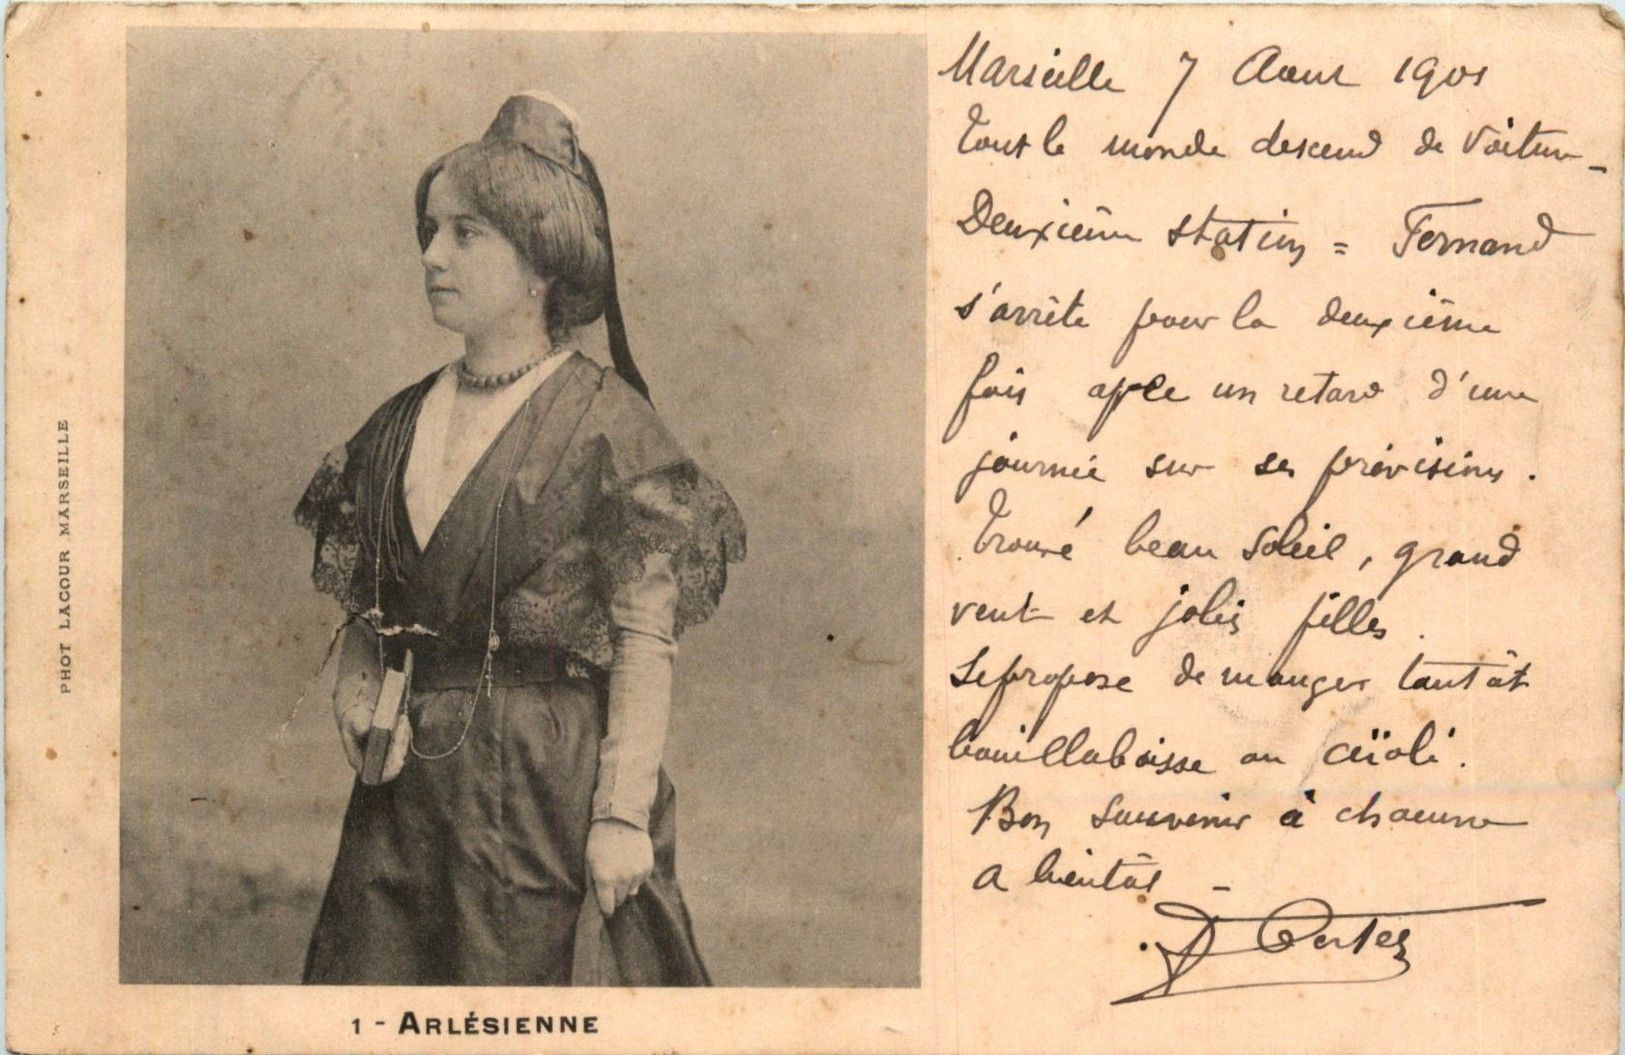 PHOT LACOUR MARSEILLE
1 - ARLÉSIENNE
Marseille 7 Aout 1901
Tout le monde descend de voiture -
Deuxième station = Fernand
s'arrête pour la deuxième
fois un retard d'une
journée sur ses provisions.
Trouvé beau soleil, grand
vent et jolies filles.
Se propose de manger tantôt
bouillabaisse ou aïoli.
Bon souvenir à chacune
A bientôt -